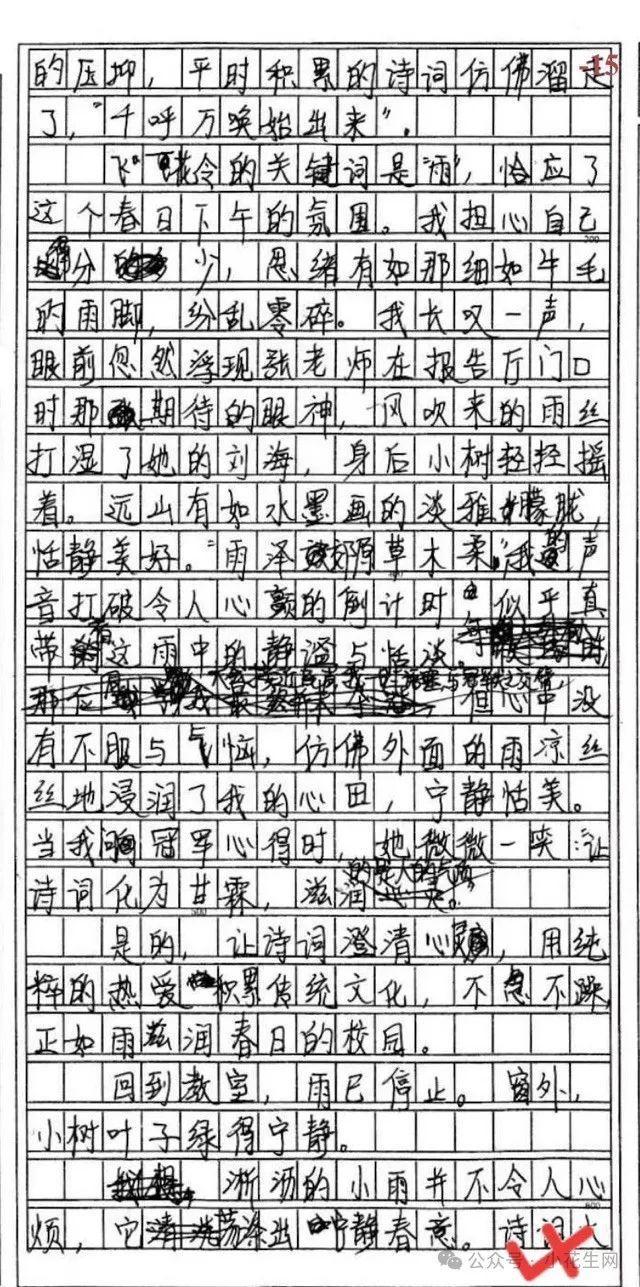 -15
的压抑，平时积累的诗词仿佛溜走
了，“千呼万唤始出来”。
飞花令的关键词是“雨”，恰应了
这个春日下午的氛围。我担心自己
得分少，思绪有如那细如牛毛
的雨脚，纷乱零碎。我长叹一声，
眼前忽然浮现张老师在报告厅门口
时那期待的眼神，风吹来的雨丝
打湿了她的刘海，身后小树轻轻摇
着。远山有如水墨画的淡雅朦胧，
恬静美好。“雨泽郊原草木柔”我的声
音打破令人心颤的倒计时，似乎真
带着这雨中的静谧与恬淡。
但心中没
有不服与气恼，仿佛外面的雨凉丝
丝地浸润了我的心田，宁静恬美。
当我问冠军心得时，她微微一笑：“让
诗词化为甘霖，滋润
500
是的，让诗词澄清心灵，用纯
粹的热爱积累传统文化，不急不躁，
正如雨滋润春日的校园。
回到教室，雨已停止。窗外，
小树叶子绿得宁静。
淅沥的小雨并不令人心
600
烦，它荡涤出宁静春意。诗词
公众号·小花生网